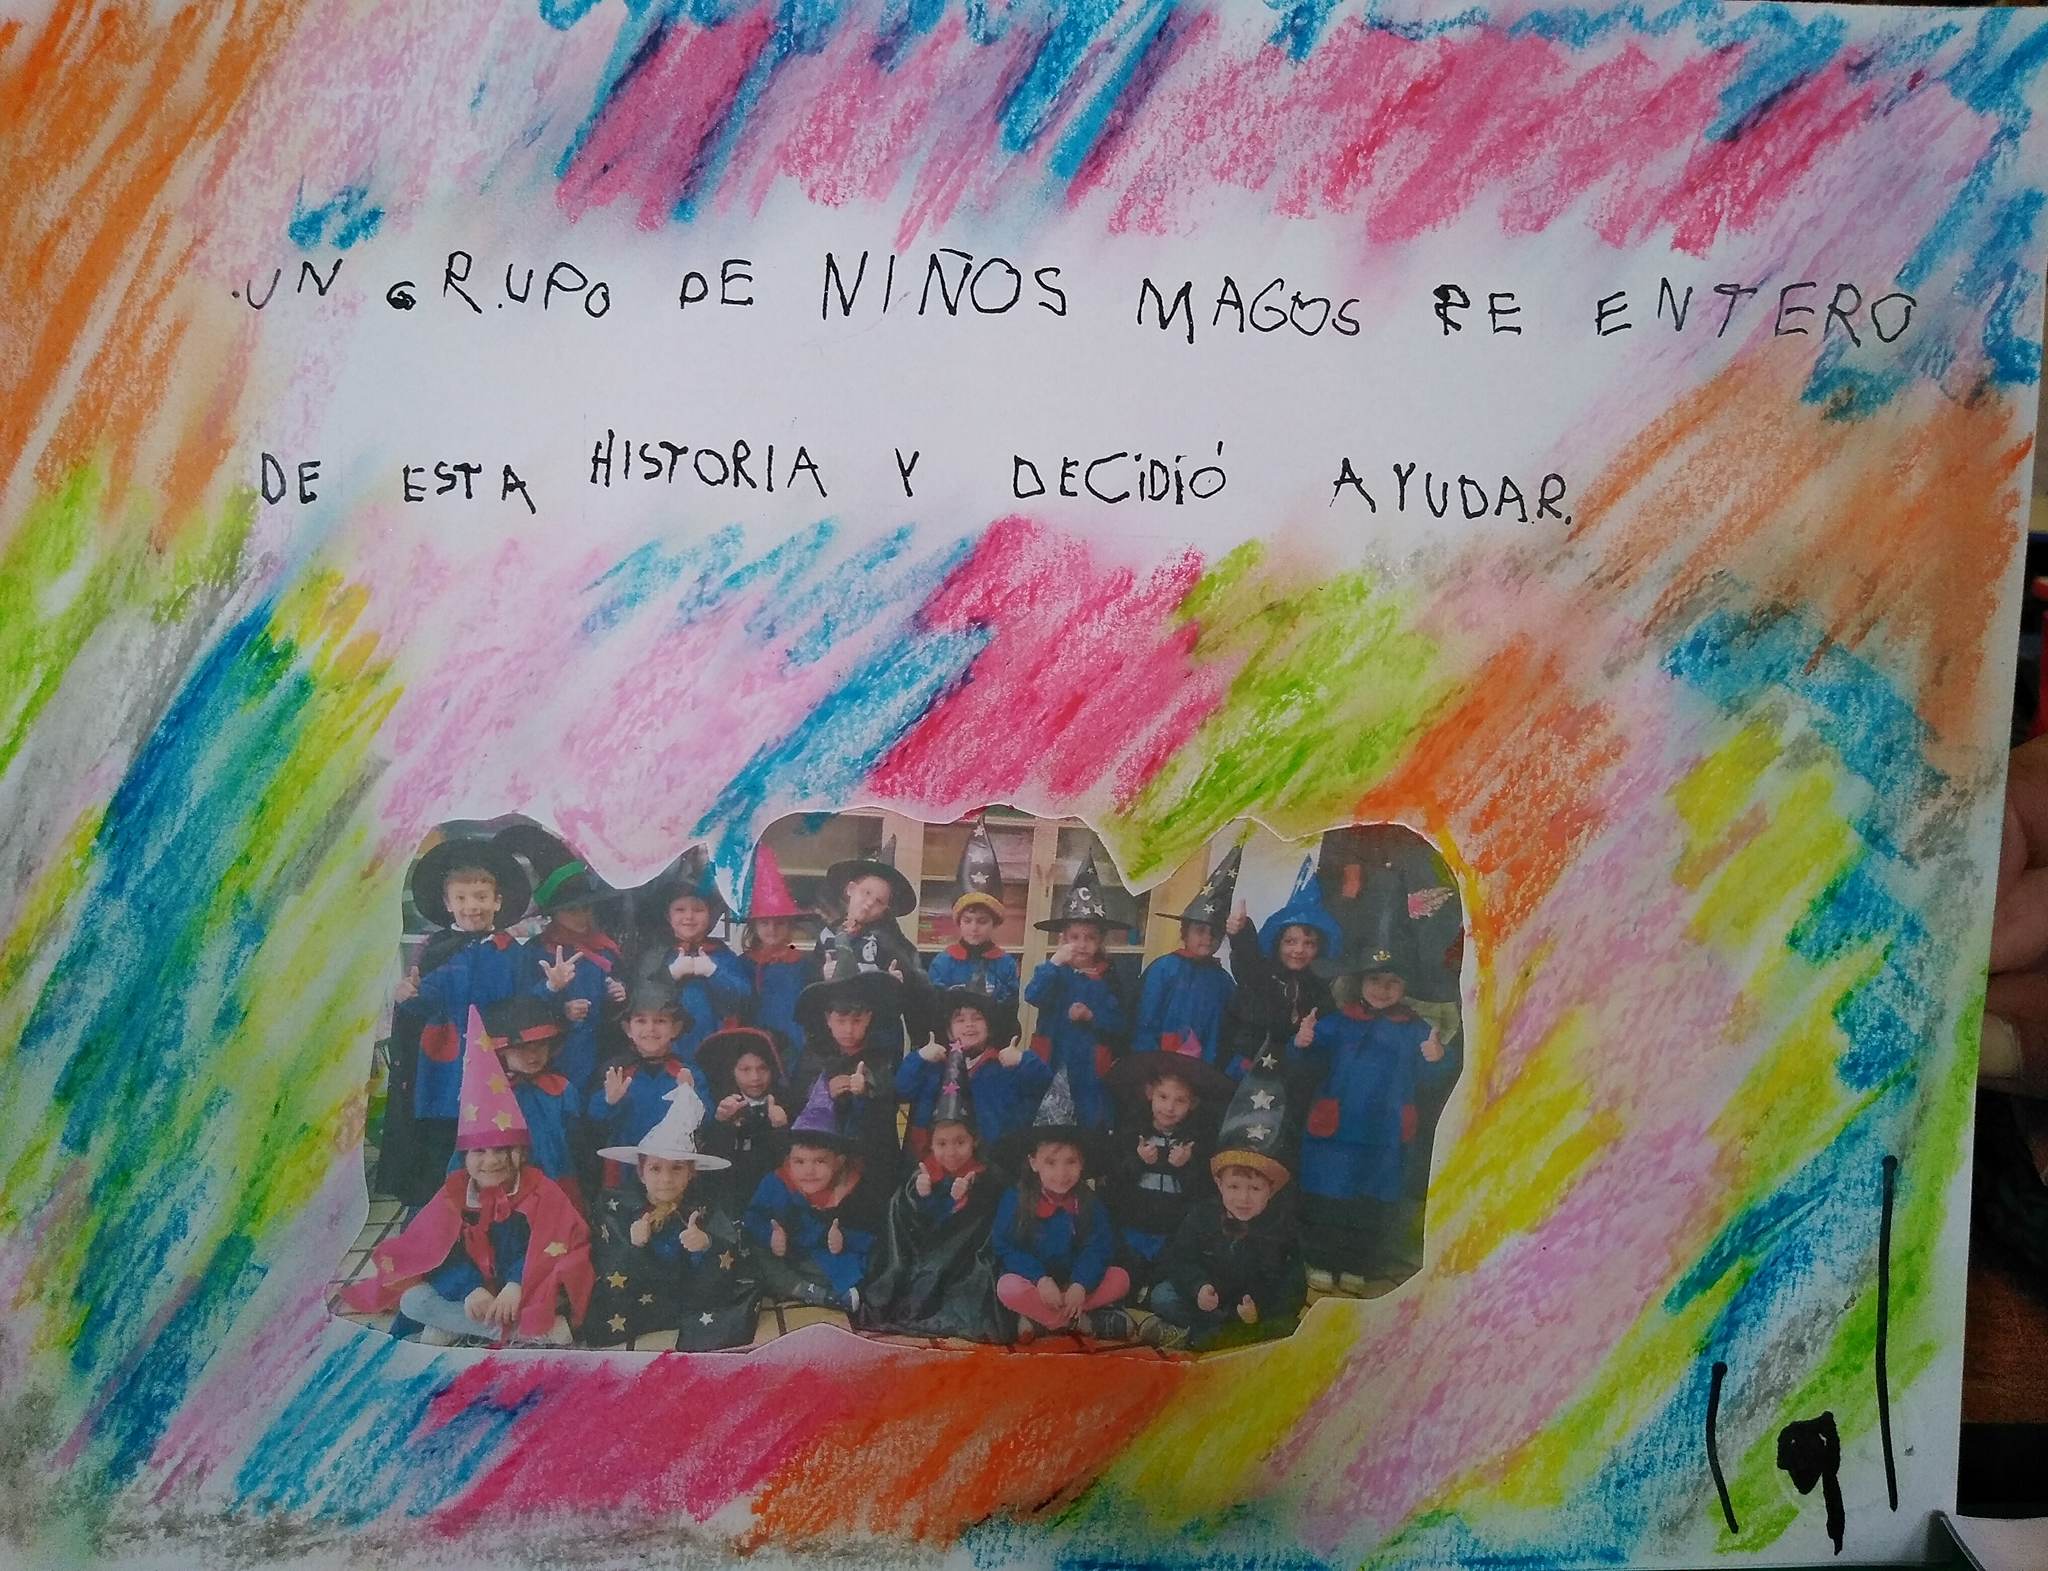 UN GRUPO DE NIÑOS MAGOS SE ENTERO
DE ESTA HISTORIA Y DECIDIÓ AYUDAR.
9